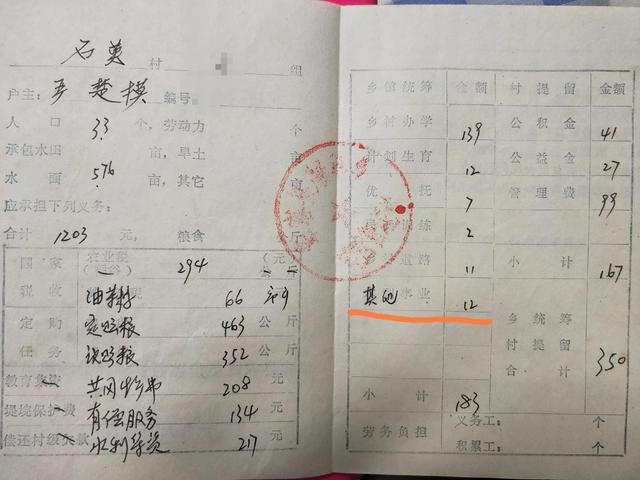 石英村 组
户主: 楚模 编号
人口 3.3 个,劳动力 个
承包水田 亩,旱土 亩
水面 5.76 亩,其它 亩
应承担下列义务:
合计 1203 元,粮食 公斤
国家 农业税 294 (元)
税收 油 税 66
定购 定购粮 463 公斤
任务 粮 352 公斤
教育集资 208 元
堤垸保护费 有偿服务 134 元
偿还村级欠款 水利 217 元
乡镇统筹 金额 村提留 金额
乡村办学 139 公积金 41
计划生育 12 公益金 27
优抚 7 管理费 99
民兵训练 2 小计 167
乡村道路 11
其他 事业 12
乡统筹
村提留
合计 350
小计 183
劳务负担 义务工: 个
积累工: 个